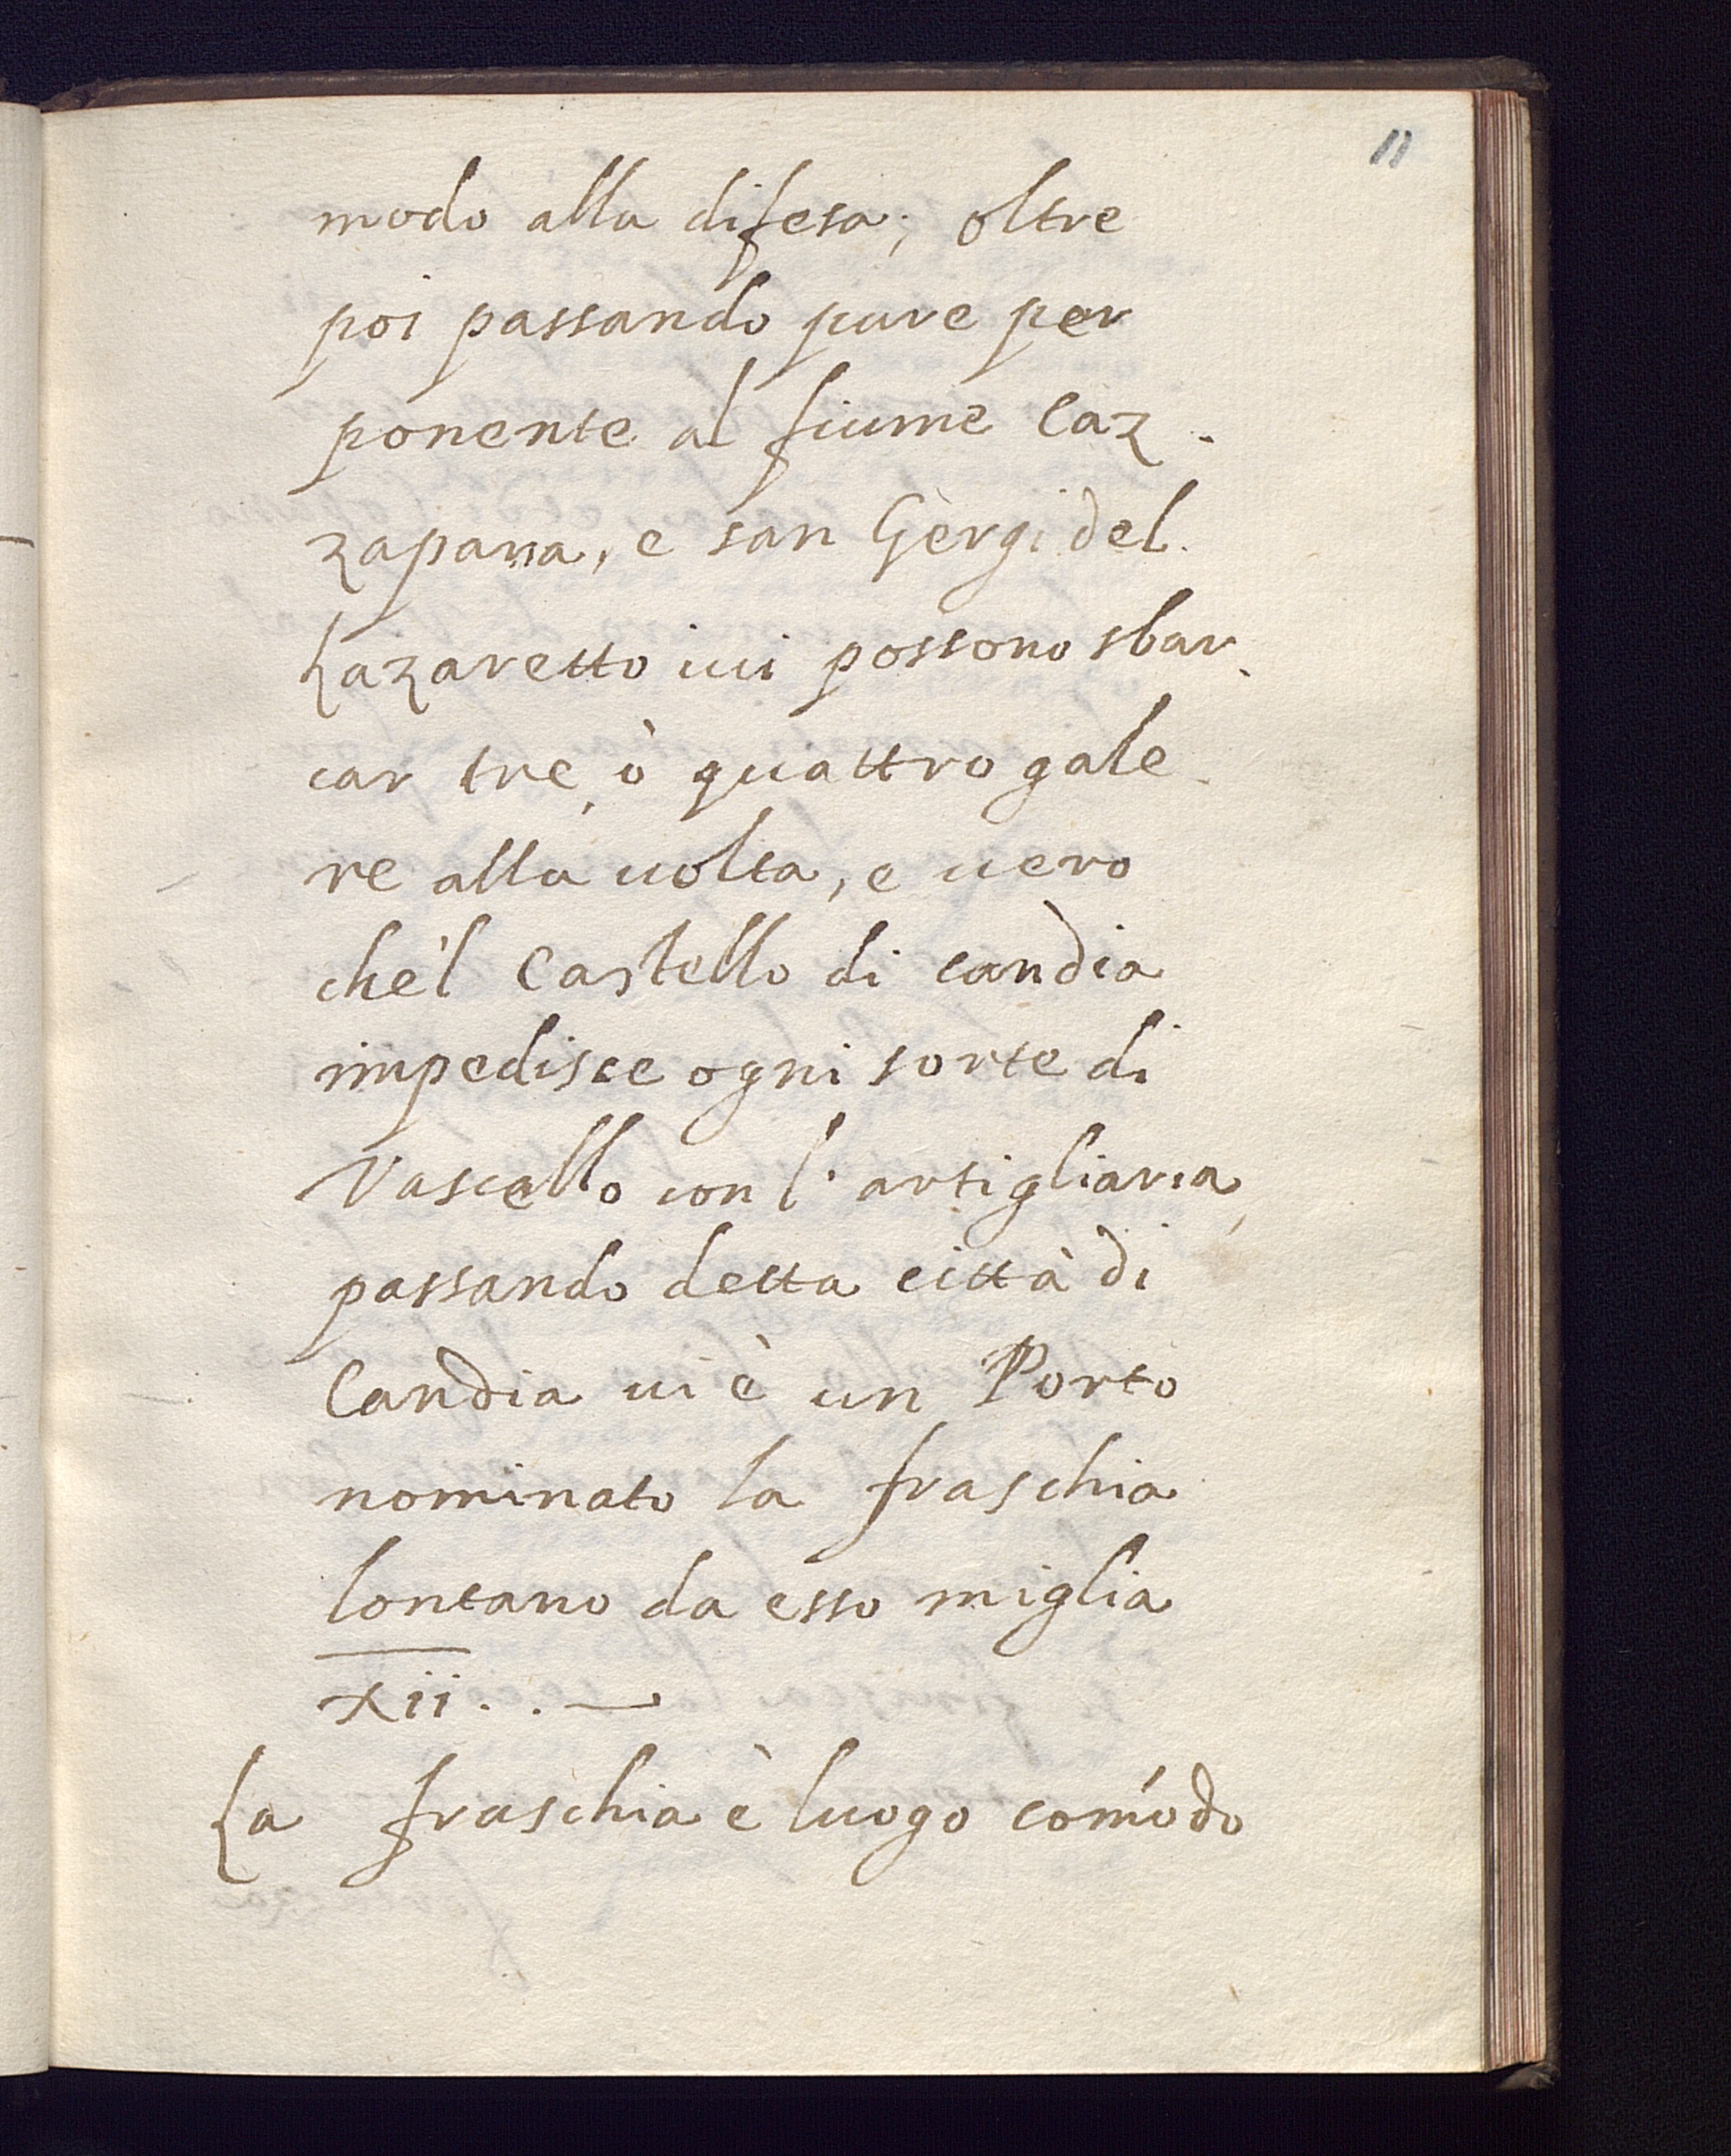 11
modo alla difesa; oltre
poi passando pure per
ponente al fiume Caz-
zapana, e san Gergi del
Lazaretto iui possono sbar-
car tre, ò quattro gale-
re alla uolta, e uero
che'l Castello di candia
impedisce ogni sorte di
Vascello con l'artigliaria,
passando detta città di
Candia ui è un Porto
nominato la fraschia
lontano da esso miglia
xii..—
La fraschia è luogo com'odo